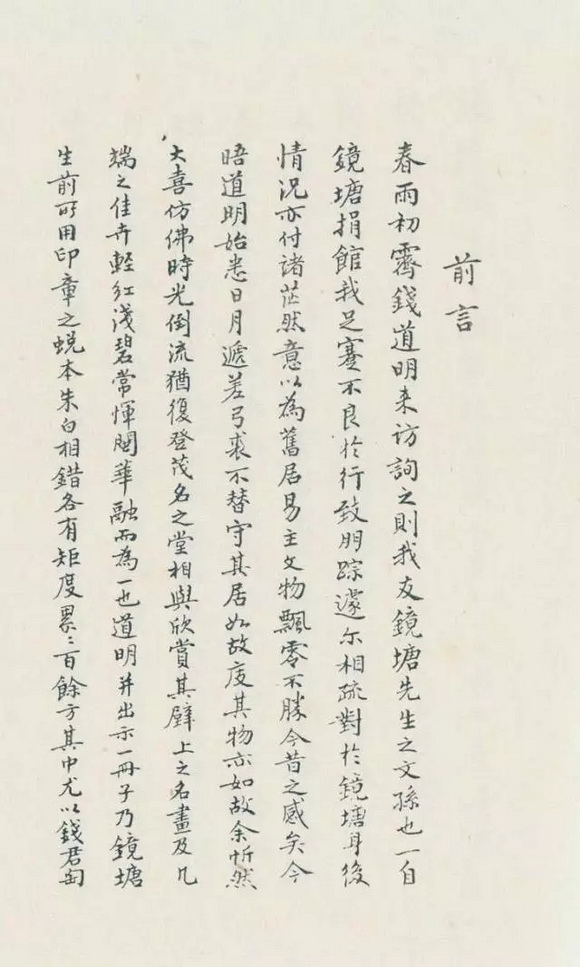 前言
春雨初霽錢道明来访詢之則我友鏡塘先生之文孫也一自
鏡塘捐館我足蹇不良於行致朋踪遽尔相疏對於鏡塘身後
情況亦付諸茫然意以為舊居易主文物飄零不勝今昔之感矣今
晤道明始悉日月遞差弓裘不替守其居如故庋其物亦如故余忻然
大喜仿佛時光倒流猶復登茂名之堂相與欣賞其壁上之名畫及几
端之佳卉輕紅淺碧常惲閩華融而為一也道明并出示一冊子乃鏡塘
生前所用印章之蜕本朱白相錯各有矩度累〻百餘方其中尤以錢君匋